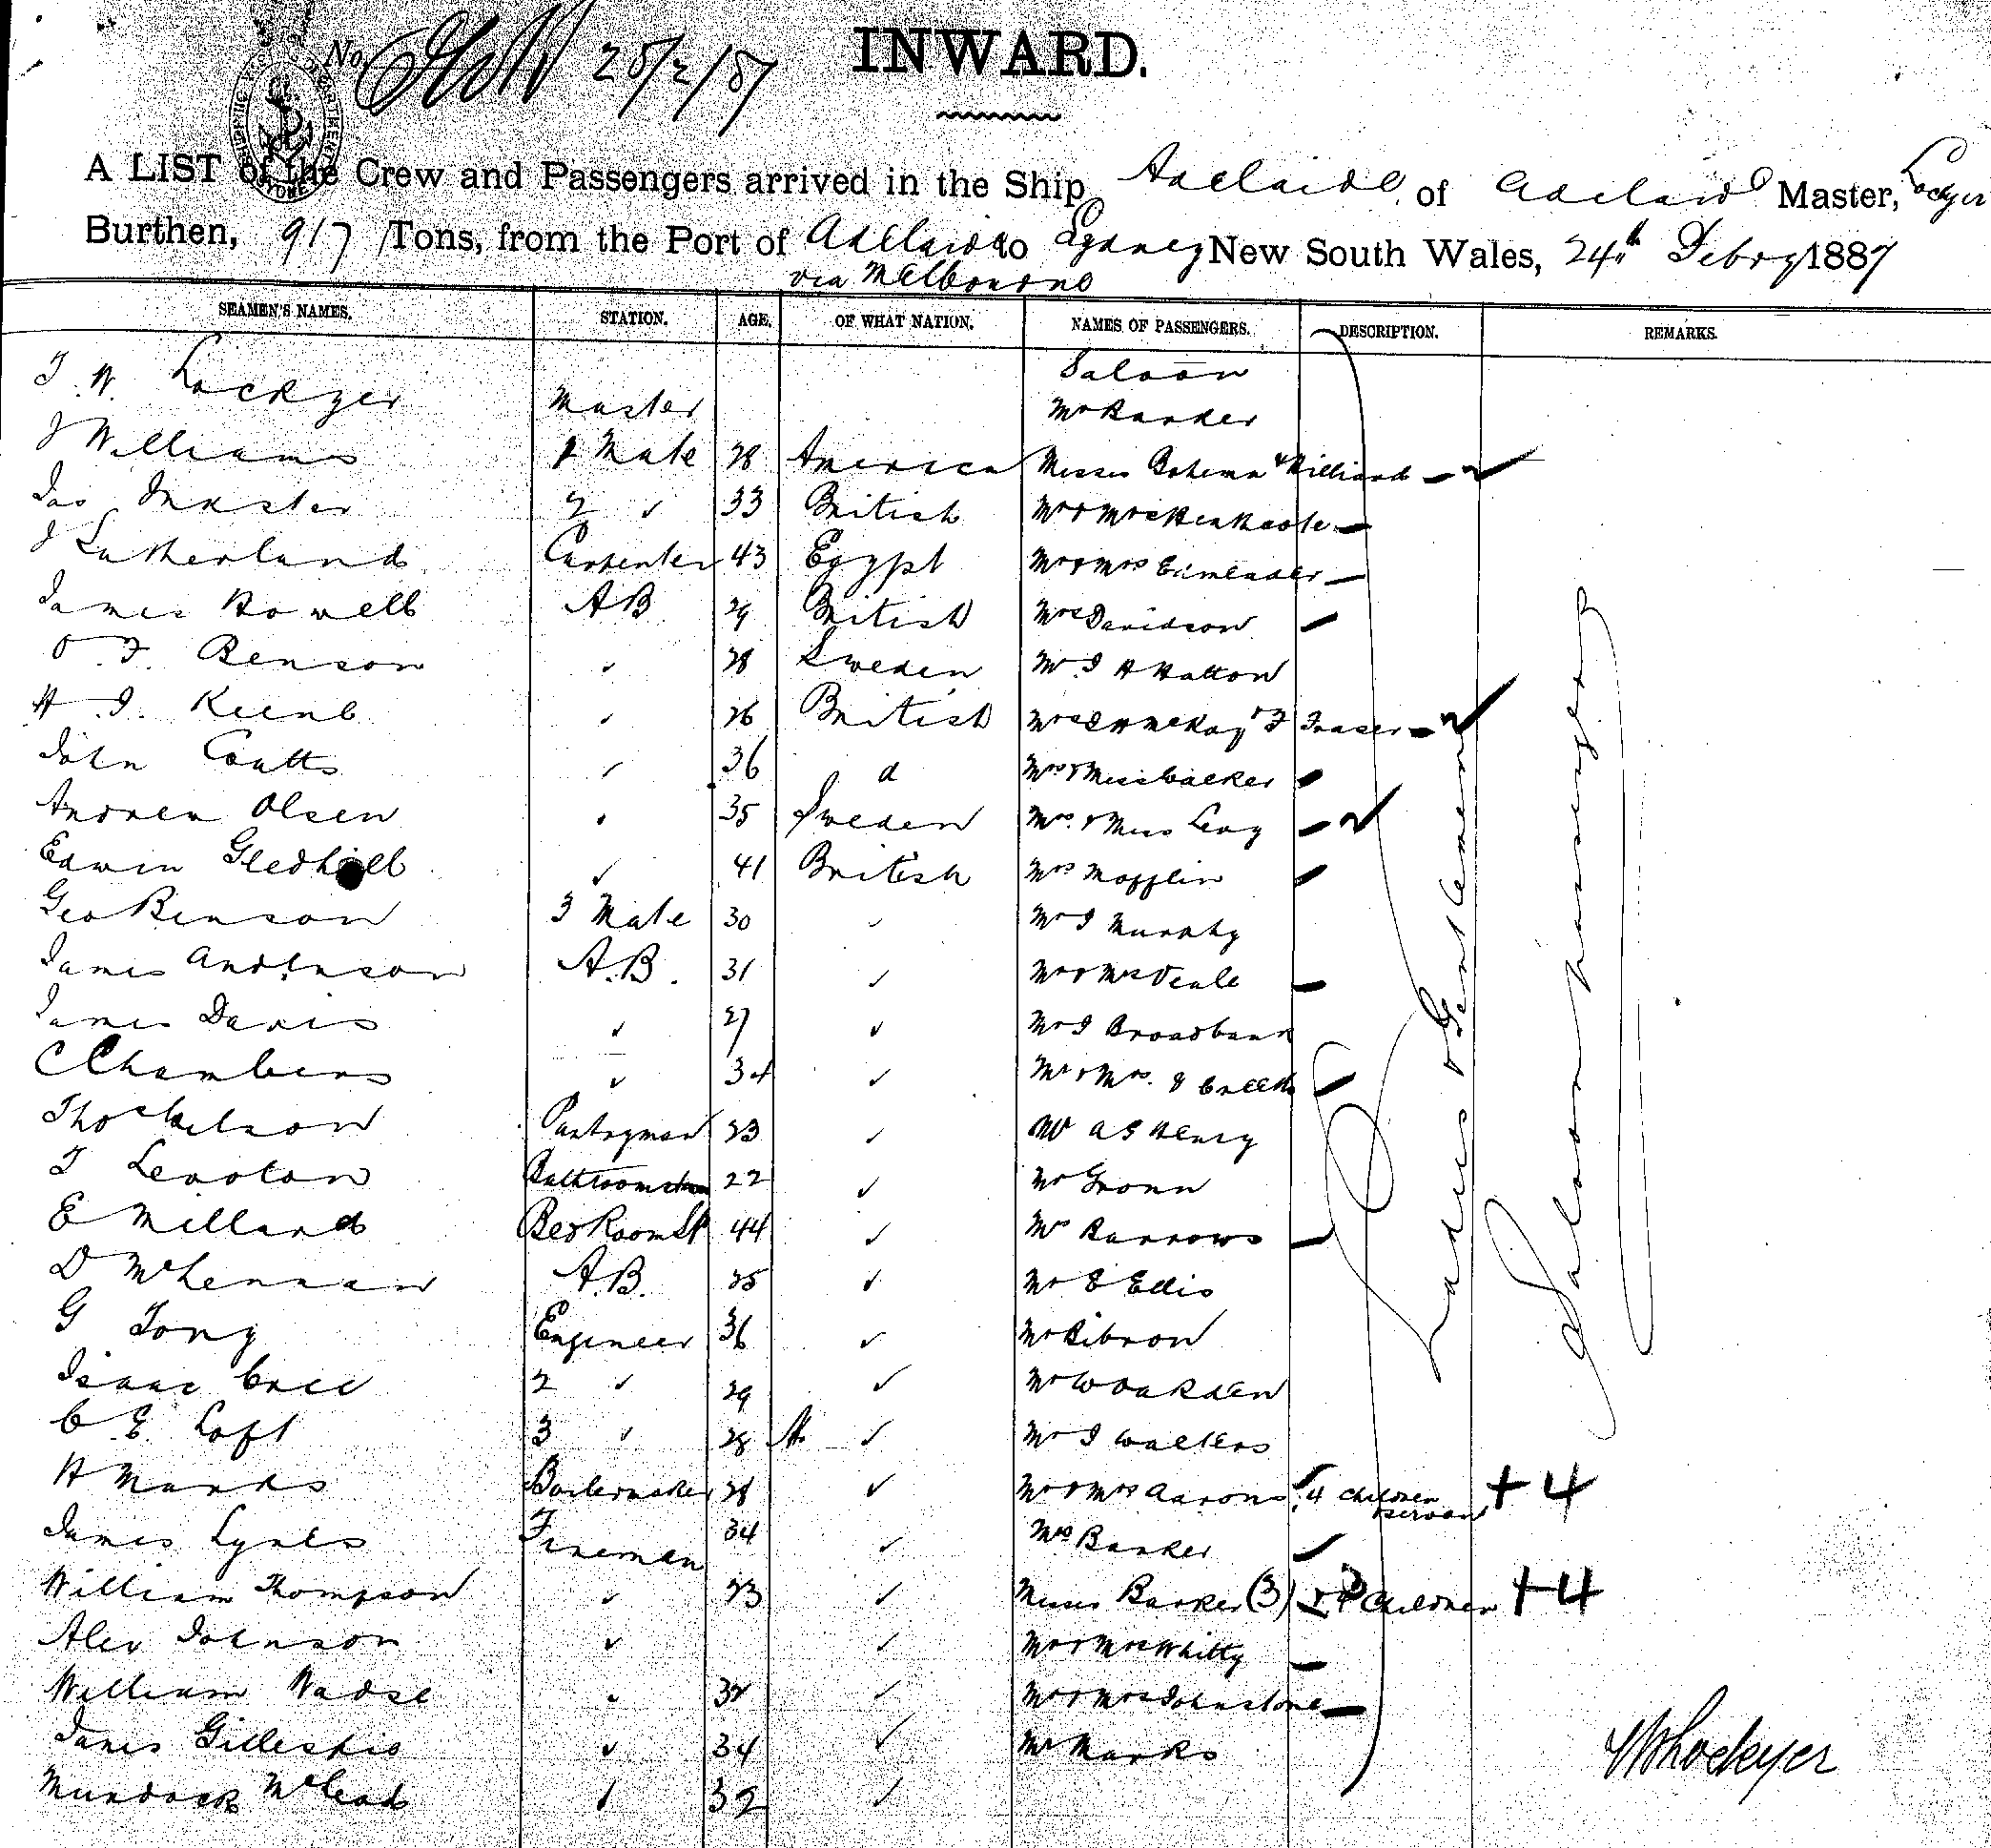 No 25/2/87
INWARD.
A LIST of the Crew and Passengers arrived in the Ship Adelaide of Adelaide Master, Lockyer
Burthen, 917 Tons, from the Port of Adelaide to Sydney New South Wales, 24th Febry 1887
via Melbourne
SEAMEN'S NAMES. STATION. AGE. OF WHAT NATION. NAMES OF PASSENGERS. DESCRIPTION. REMARKS.
Saloon
J. W. Lockyer Master Mr Barker
J Williams 1 Mate 28 America Misses &
Jas Inkster 2 ✓ 33 British Mr & Mrs
J Sutherland Carpenter 43 Egypt Mr & Mrs
James Howell AB 29 British Mrs Davidson
O. F. Benson ✓ 28 Sweden Mr J H Hatton
H. J. ✓ 26 British Mrs J H McKay & F Fraser
John Coutts ✓ 36 d Mrs & Miss Walker
Andrew Olsen 35 Sweden Mrs. & Miss Levy ✓
Edwin Gledhill ✓ 41 British Mrs Mofflin
Geo Benson 3 Mate 30 ✓ Mr J Murphy
James Anderson A.B. 31 ✓ Mr & Mrs Veale
James Davis ✓ 27 ✓ Mr J Broadbank
C Chambers ✓ 34 ✓ Mr & Mrs.
Thos Wilson Pantryman 23 ✓ Mr A G Henry
T 22 ✓ Mr Gronn
E Millard Bed Room St 44 ✓ Barrows
D McLennan A.B. 25 ✓ Mr E Ellis
G Tong Engineer 36 ✓ Mr
Isaac 2 ✓ 29 ✓ Mr W Oakden
C. E. Loft 3 ✓ 28 ✓ Mr J Walters
H Marks Boilermaker 28 ✓ Mr & Mrs Aarons 4 children servant +4
James Lynes Fireman 34 ✓ Mrs Barker
William Thompson ✓ 23 ✓ Misses Barker (3) & Children +4
Alex Johnson ✓ ✓ Mr & Mrs Whitty
William ✓ 32 ✓ Mr & Mrs Johnstone
James Gillespie ✓ 34 ✓ Mr Marks
Murdock McLeod ✓ 32 ✓
Ladies & Gentlemen
Saloon passengers
Lockyer